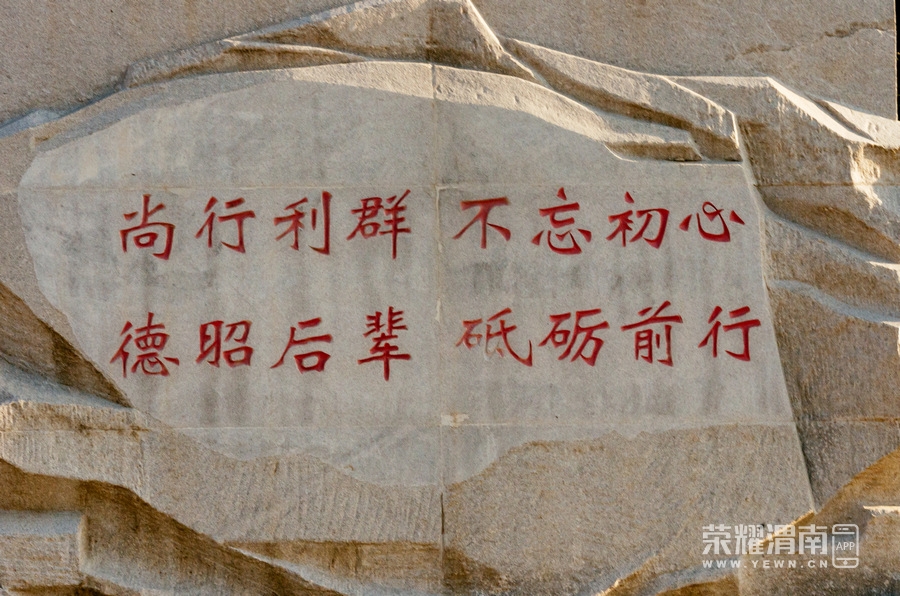 尚行利群 不忘初心
德昭后辈 砥砺前行
荣耀渭南 APP
WWW.YEWN.CN